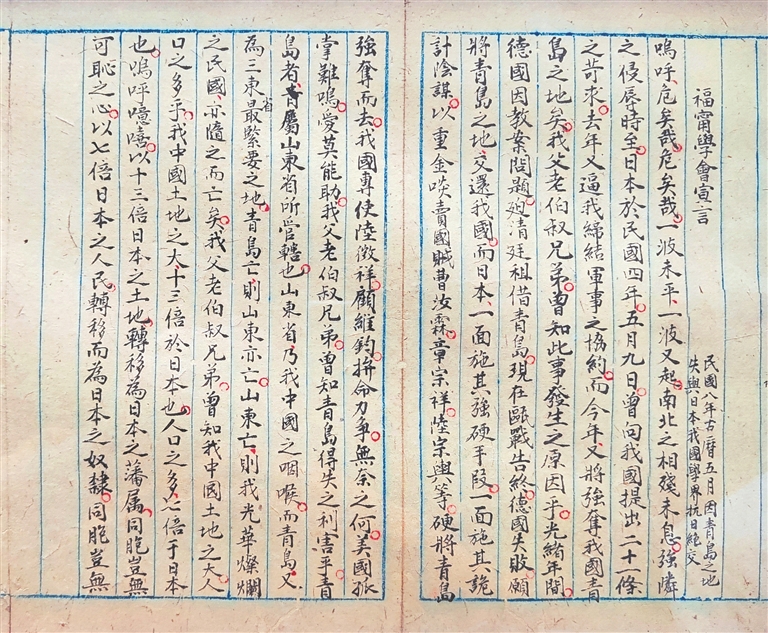 福甯學會宣言
民國八年古曆五月因青島之地
失與日本我國學界抗日絕交
嗚呼危矣哉危矣哉一波未平一波又起南北之相殘未息強隣
之侵辱時至日本於民國四年五月九日曾向我國提出二十一條
之苛求去年又逼我締結軍事之協約而今年又將強奪我國青
島之地矣我父老伯叔兄弟曾知此事發生之原因乎光緒年間
德國因教案問題廹清廷祖借青島現在甌戰告終德國失敗願
將青島之地交還我國而日本一面施其強硬手段一面施其詭
計陰謀以重金啖賣國賊曹汝霖章宗祥陸宗輿等硬將青島
強奪而去我國專使陸徵祥顧維鈞拚命力爭無奈之何美國孤
掌難嗚愛莫能助我父老伯叔兄弟曾知青島得失之利害乎青
島者青屬山東省所管轄也山東省乃我中國之咽喉而青島又
為三東省最緊要之地青島亡則山東亦亡山東亡則我光華燦爛
之民國亦隨之而亡矣我父老伯叔兄弟曾知我中國土地之大人
口之多乎我中國土地之大十三倍於日本也人口之多七倍于日本
也嗚呼噫嘻以十三倍日本之土地轉移為日本之藩属同胞豈無
可恥之心以七倍日本之人民轉移而為日本之奴隸同胞豈無